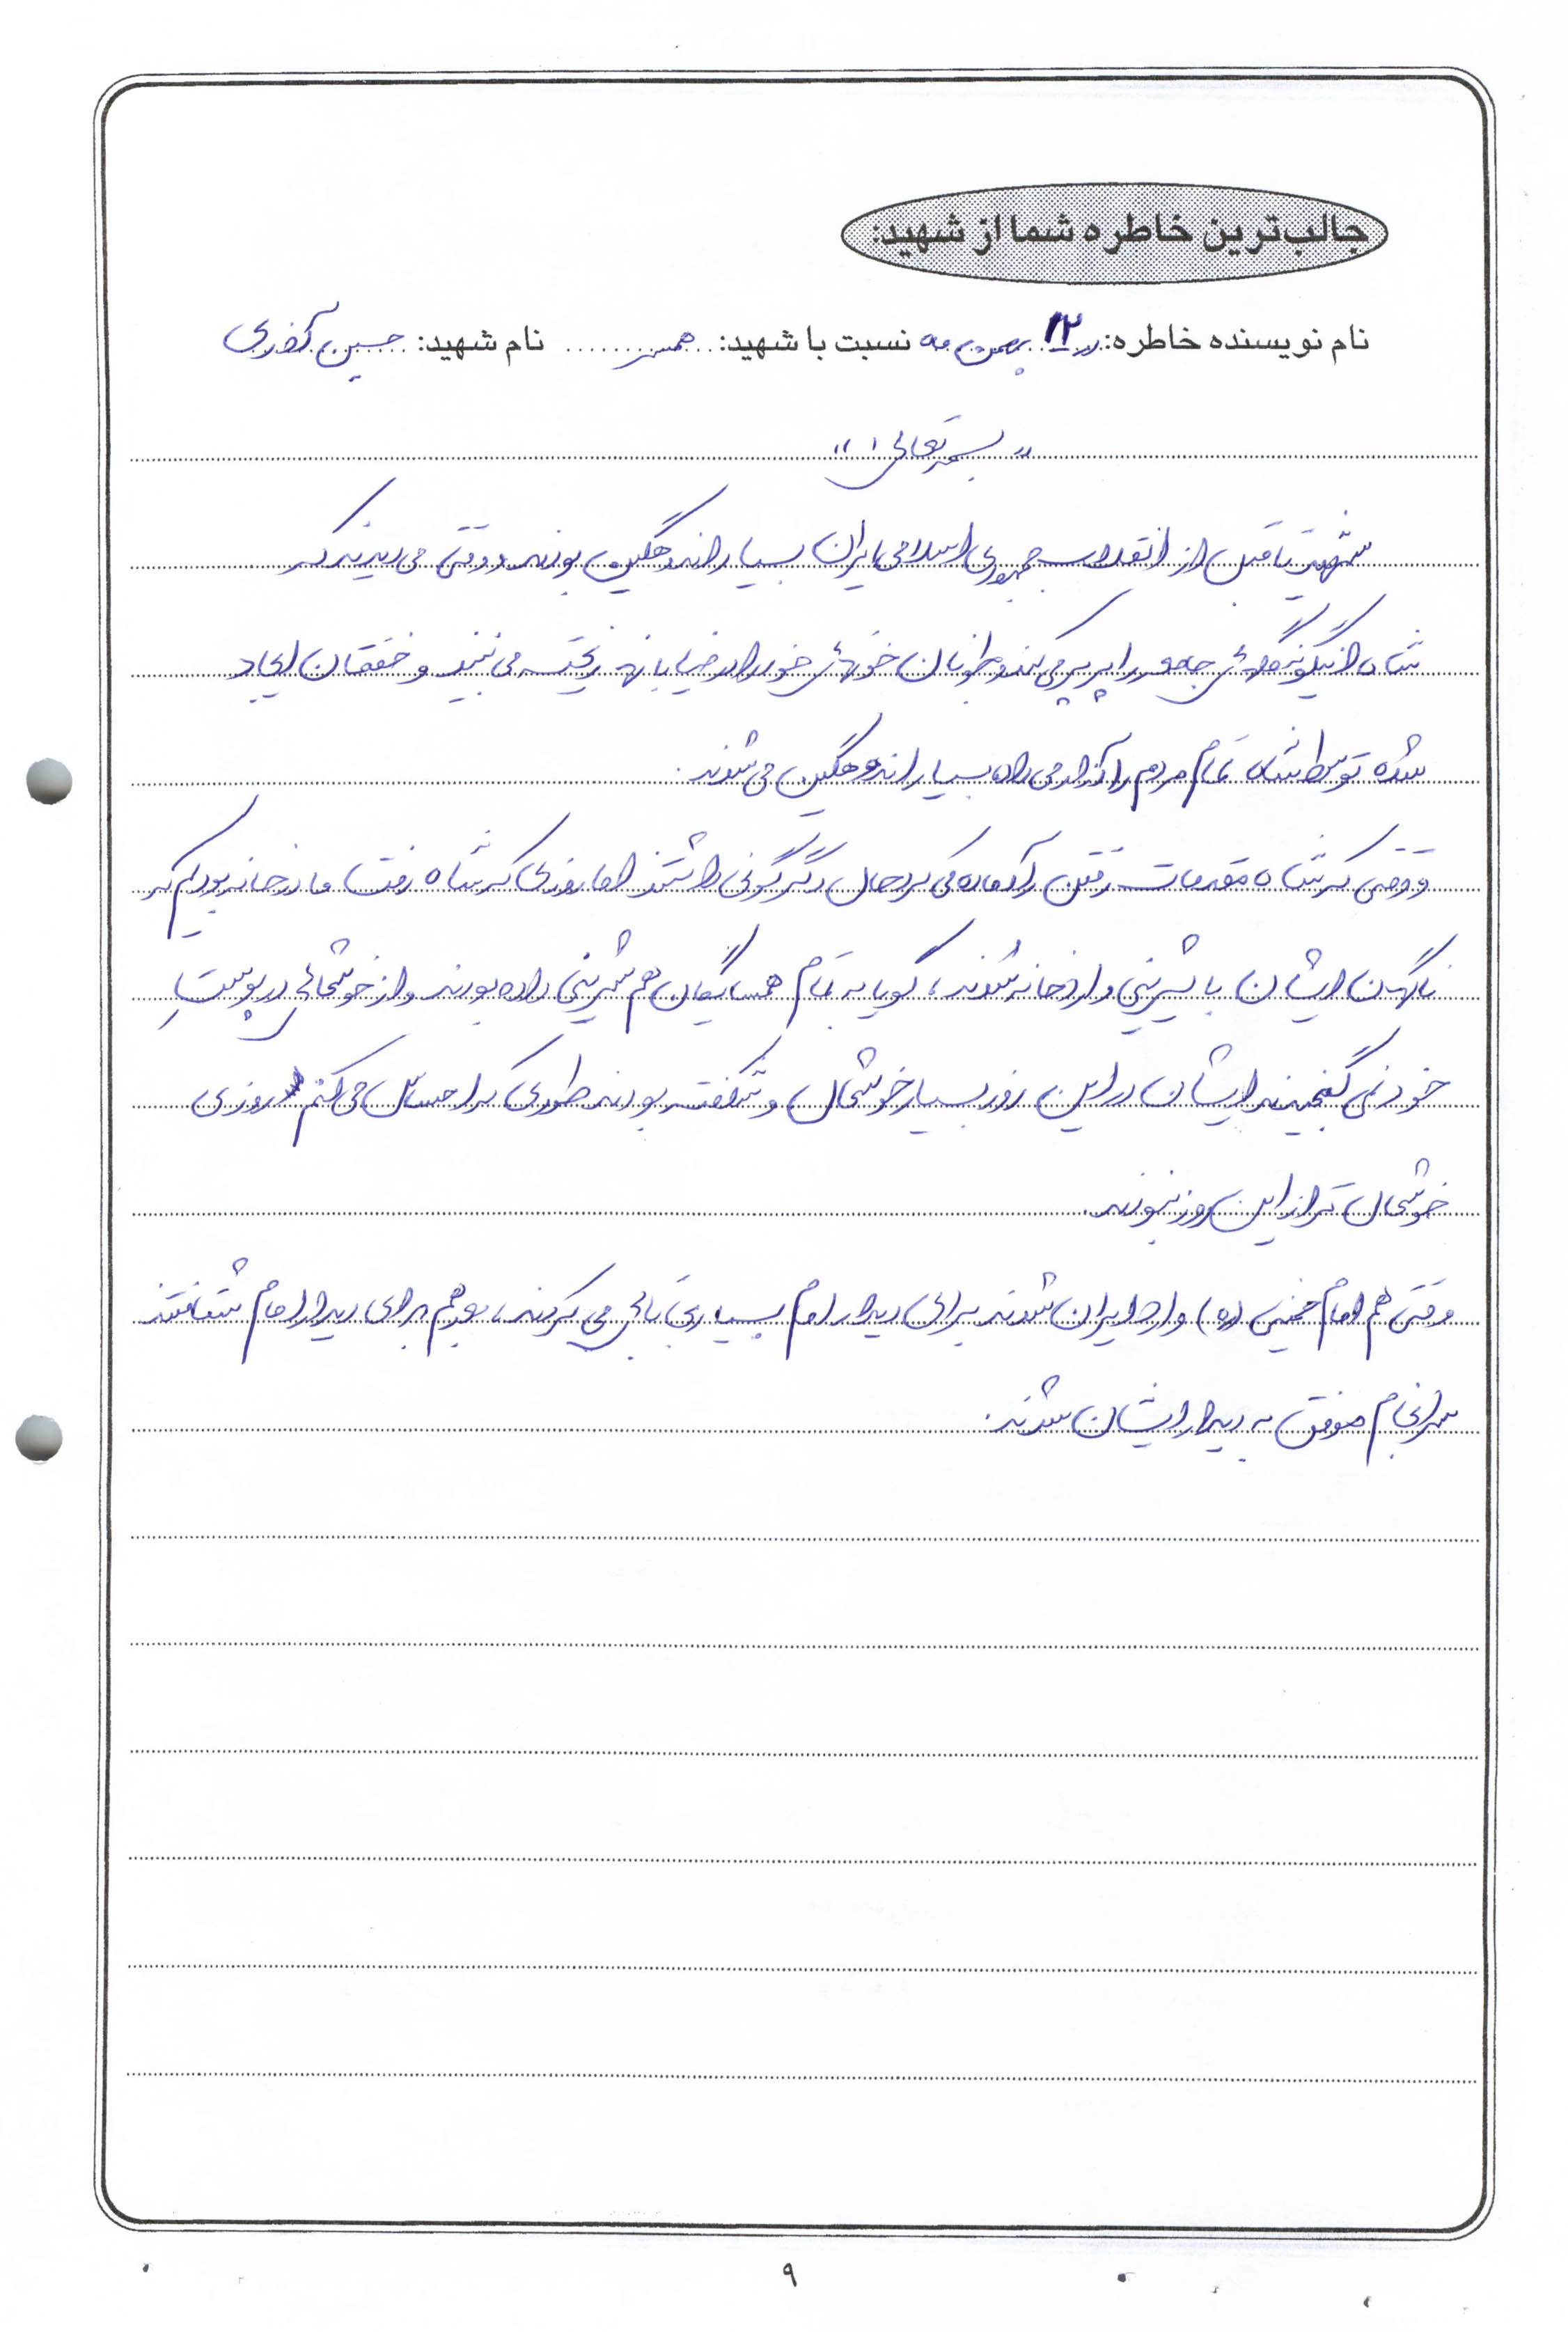 جالب‌ترین خاطره شما از شهید:
نام نویسنده خاطره: ۱۲ بهمن ماه نسبت با شهید: همسر نام شهید: حسین آذری
« بسمه تعالی »
شهید تا قبل از انقلاب جمهوری اسلامی ایران بسیار اندوهگین بودند و وقتی می دیدند که
شاه اینگونه گلهای جامعه را پرپر می کند و جوانان خونهای خود را در خیابانها ریخته می بینند و خفقان ایجاد
شده توسط شاه تمام مردم را آزار می داد بسیار اندوهگین می شدند.
و وقتی که شاه مقدمات رفتن را آماده می کرد حال دگرگونی داشتند اما روزی که شاه رفت ما در خانه بودیم که
ناگهان ایشان با شیرینی وارد خانه شدند، گویا به تمام همسایگان هم شیرینی داده بودند و از خوشحالی در پوستِ
خود نمی گنجیدند ایشان در این روز بسیار خوشحال و شگفت بودند طوری که احساس می کنم روزی
خوشحال تر از این روز نبودند.
وقتی هم امام خمینی (ره) وارد ایران شدند برای دیدار امام بسیار بی تابی می کردند، و هم برای دیدار امام شتافتند
سرانجام موفق به دیدار ایشان شدند.
۹